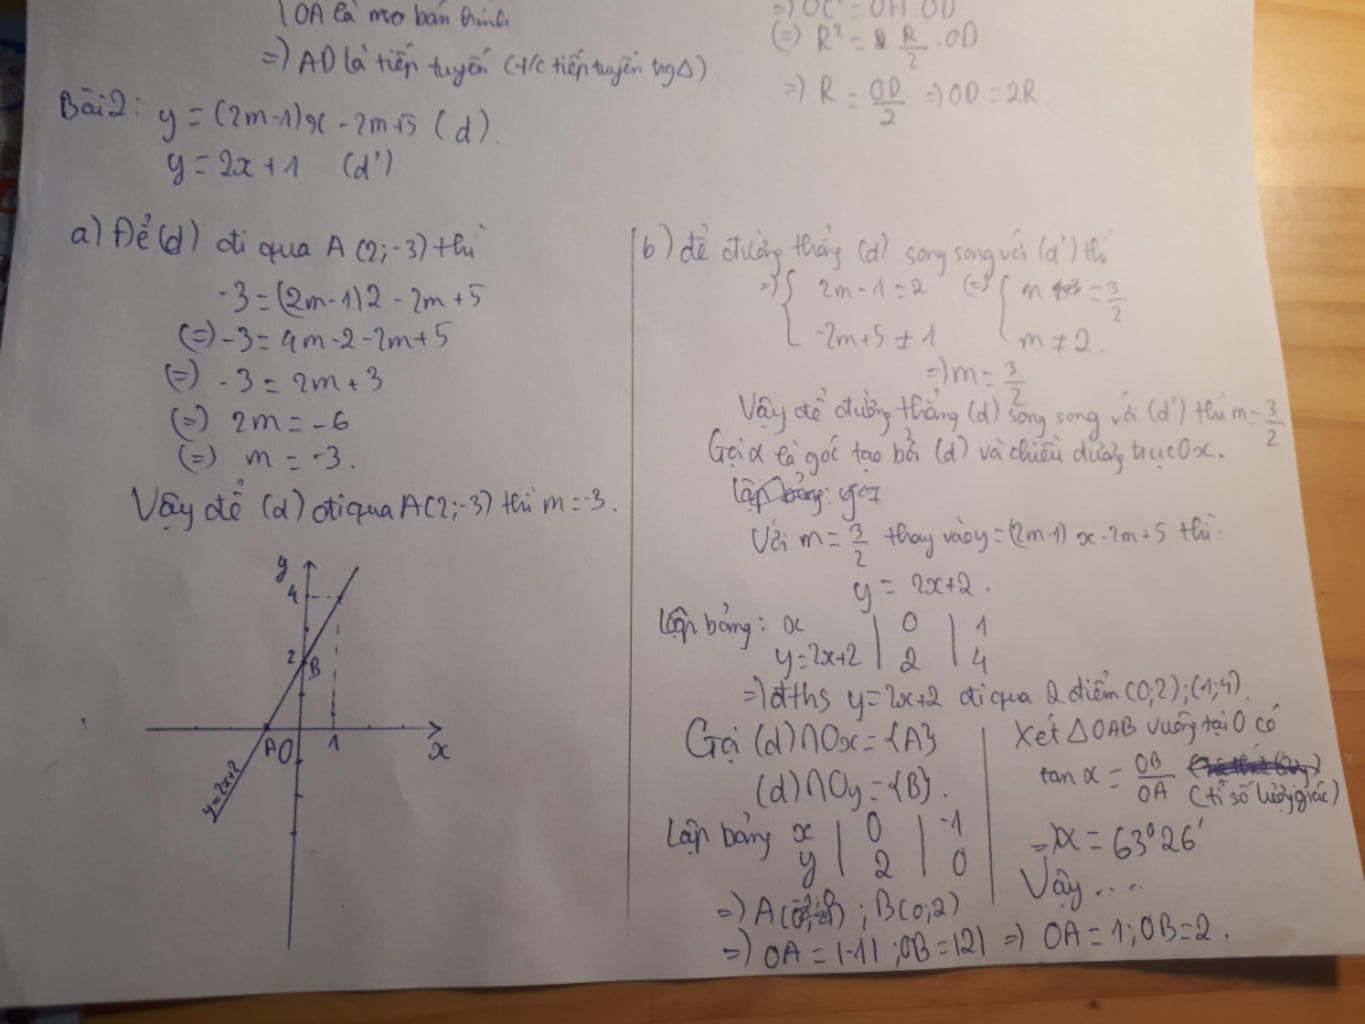 OA là
=) OC² = OH.OD
=) AD là tiếp tuyến (t/c tiếp tuyến trg Δ)
(=) R² = R/2 . OD
=) R = OD/2 =) OD = 2R
Bài 2: y = (2m-1)x - 2m+5 (d).
y = 2x + 1 (d')
a) Để (d) đi qua A (2;-3) thì
-3 = (2m-1)2 - 2m+5
(=) -3 = 4m-2-2m+5
(=) -3 = 2m+3
(=) 2m = -6
(=) m = -3.
Vậy để (d) đi qua A(2;-3) thì m = -3.
y
4
2
B
A O 1 x
y=2x+2
b) để đường thẳng (d) song song với (d') thì
=) { 2m-1 = 2 (=) { m = 3/2
-2m+5 ≠ 1 m ≠ 2.
=) m = 3/2
Vậy để đường thẳng (d) song song với (d') thì m = 3/2
Gọi α là góc tạo bởi (d) và chiều dương trục Ox.
Với m = 3/2 thay vào y = (2m-1) x - 2m+5 thì:
y = 2x+2.
Lập bảng: x | 0 | 1
y=2x+2 | 2 | 4
=) đths y = 2x+2 đi qua 2 điểm (0;2);(1;4).
Gọi (d)∩Ox = {A}
(d)∩Oy = {B}.
Lập bảng x | 0 | -1
y | 2 | 0
=) A( ) ; B(0;2)
=) OA = |-1| ; OB = |2| =) OA = 1; OB = 2.
Xét ΔOAB vuông tại O có
tan α = OB/OA
(tỉ số lượng giác)
=) α = 63°26'
Vậy ....